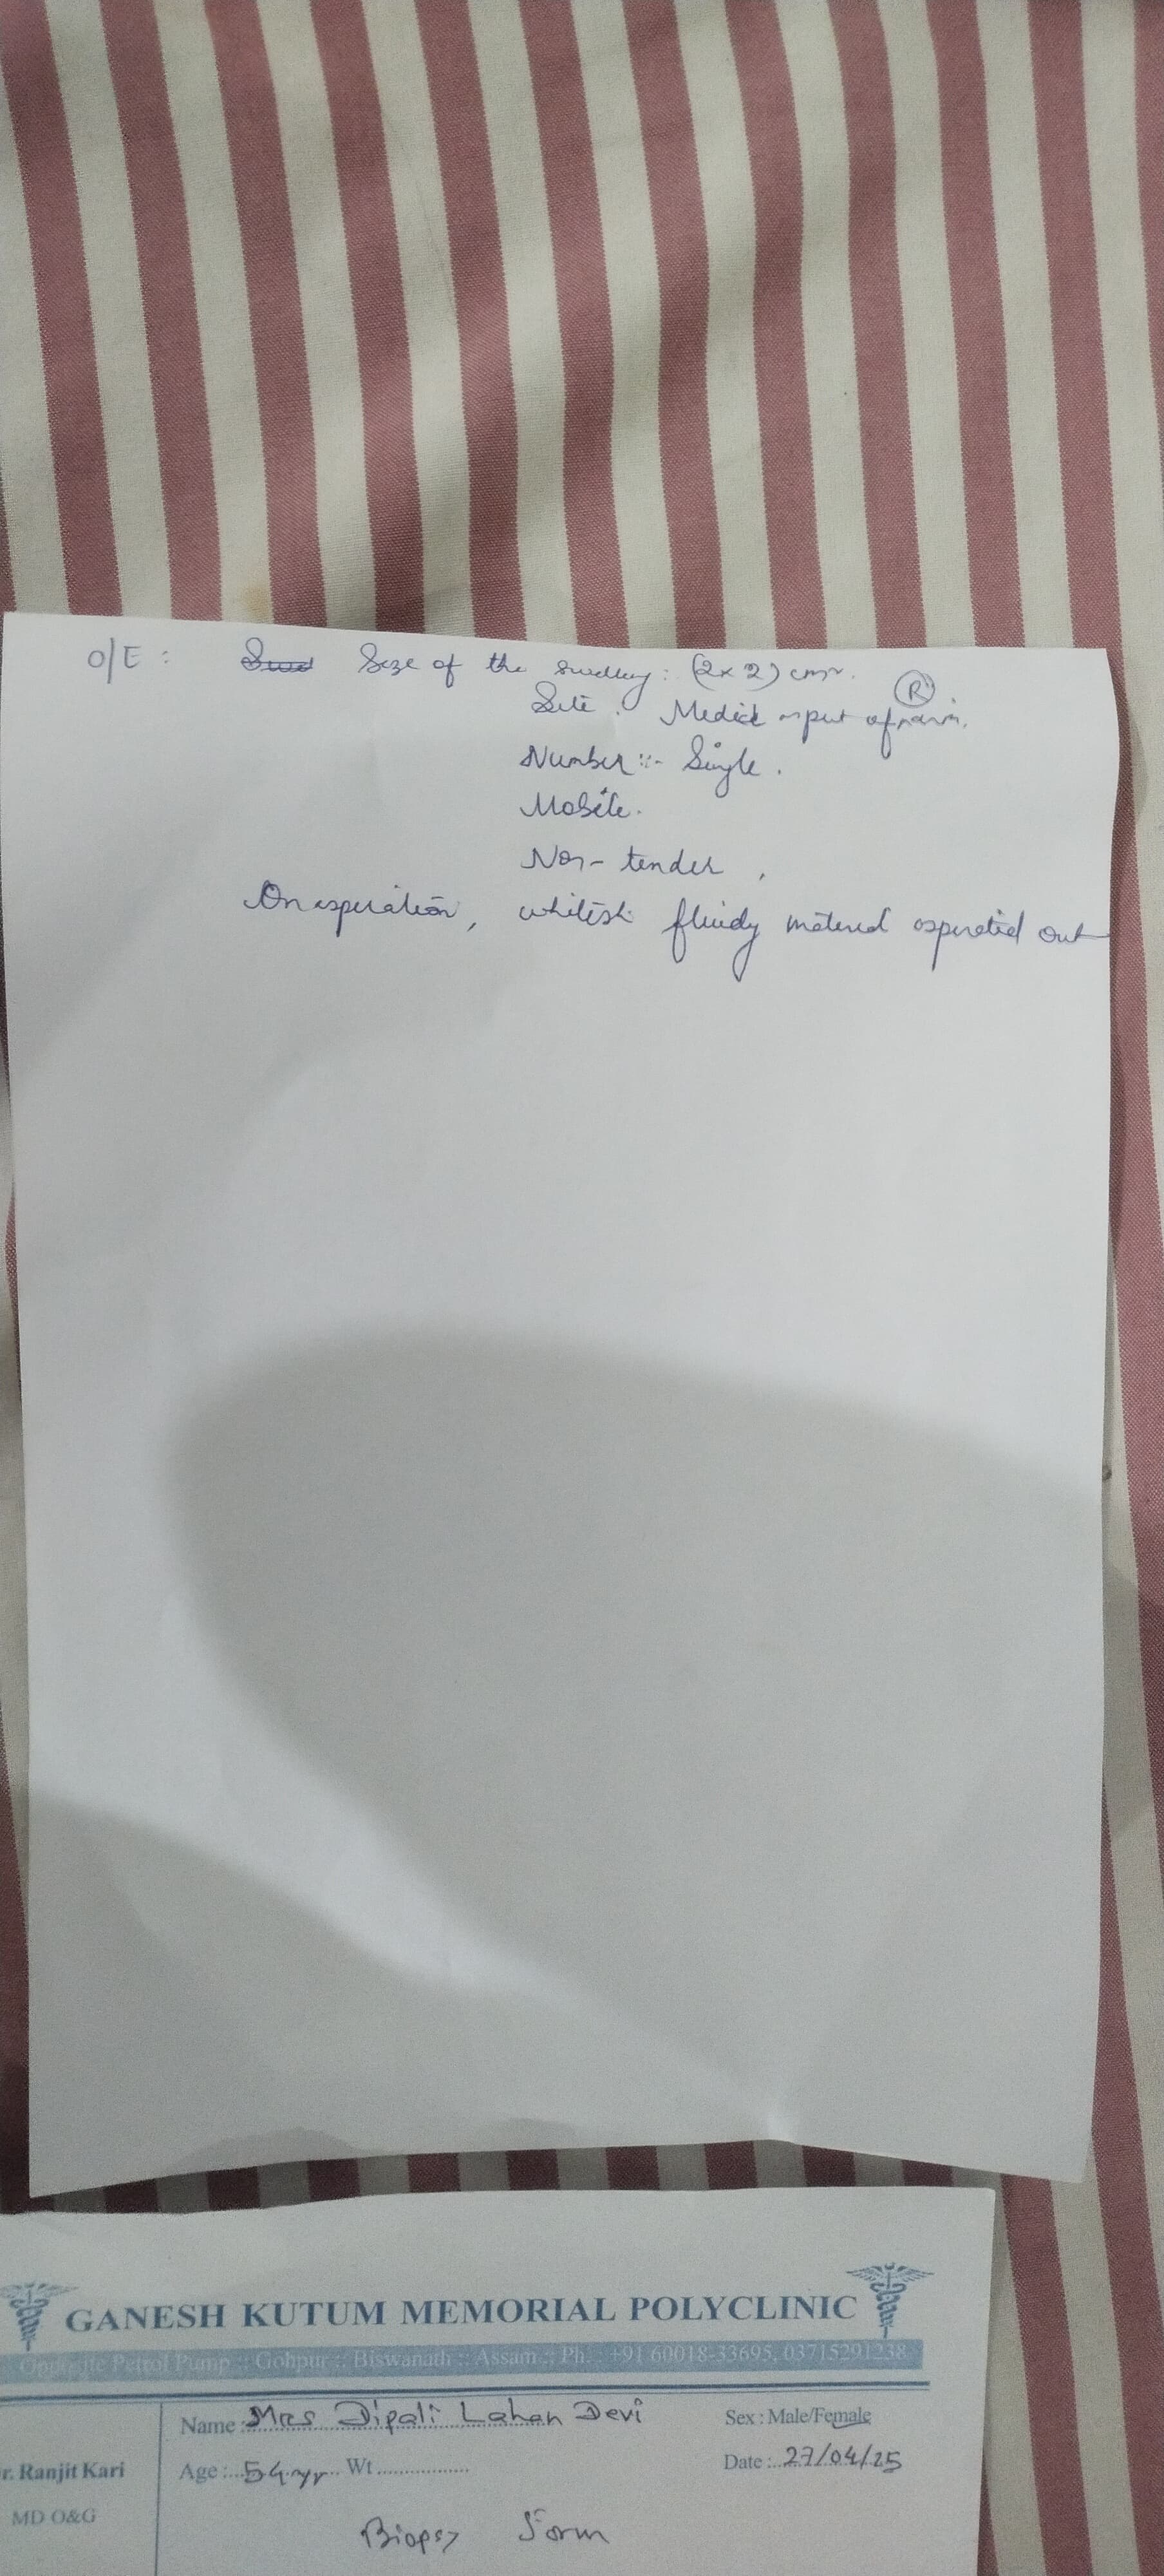 O/E : Size of the swelling : (2 x 2) cm.
Site : part of (R) arm.
Number :- Single.
Mobile.
Non-tender,
On aspiration, whitish fluidy material aspirated out
GANESH KUTUM MEMORIAL POLYCLINIC
Opposite Petrol Pump :: Gohpur :: Biswanath :: Assam :: Ph. : +91 60018-33695, 03715291238
Name : Mrs Dipali Lahan Devi Sex : Male/Female
r. Ranjit Kari Age : 54 yr Wt Date : 27/04/25
MD O&G
Biopsy Form